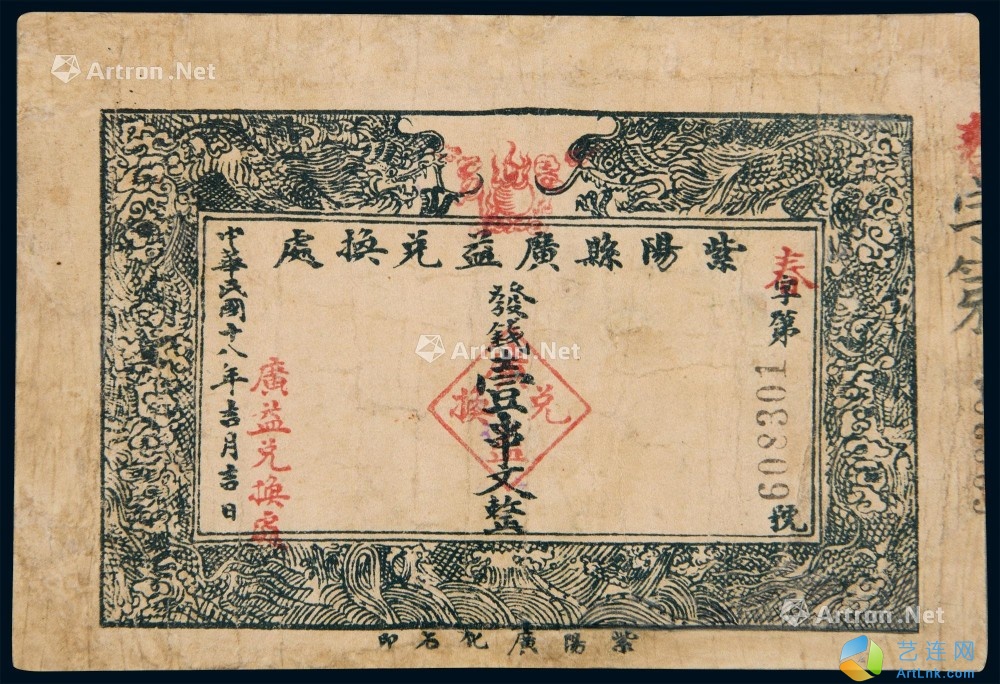 Artron.Net
紫陽縣廣益兌換處
春字第
608301
號
發錢壹串文整
Artron.Net
兌換
中華民國十八年吉月吉日
廣益兌換處
字第
紫陽廣化石印
Artron.Net
艺连网
ArtLnk.com